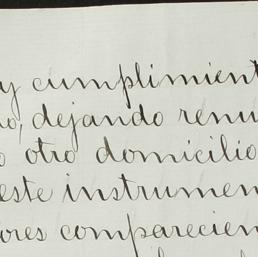 y cumplimient
o, dejando renu
o otro domicilio
este instrumen
ores comparecien